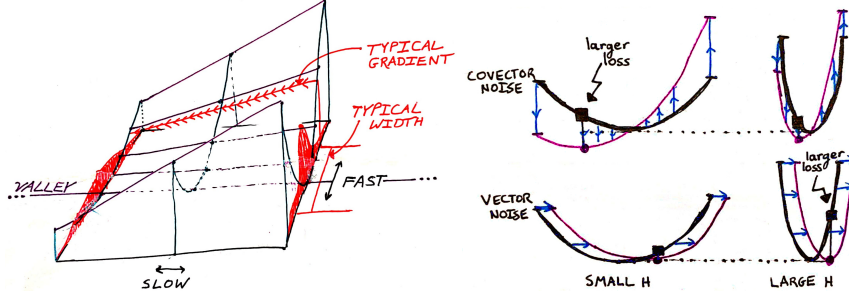 TYPICAL
GRADIENT
TYPICAL
WIDTH
VALLEY
FAST
SLOW
larger
loss
COVECTOR
NOISE
larger
loss
VECTOR
NOISE
SMALL H
LARGE H